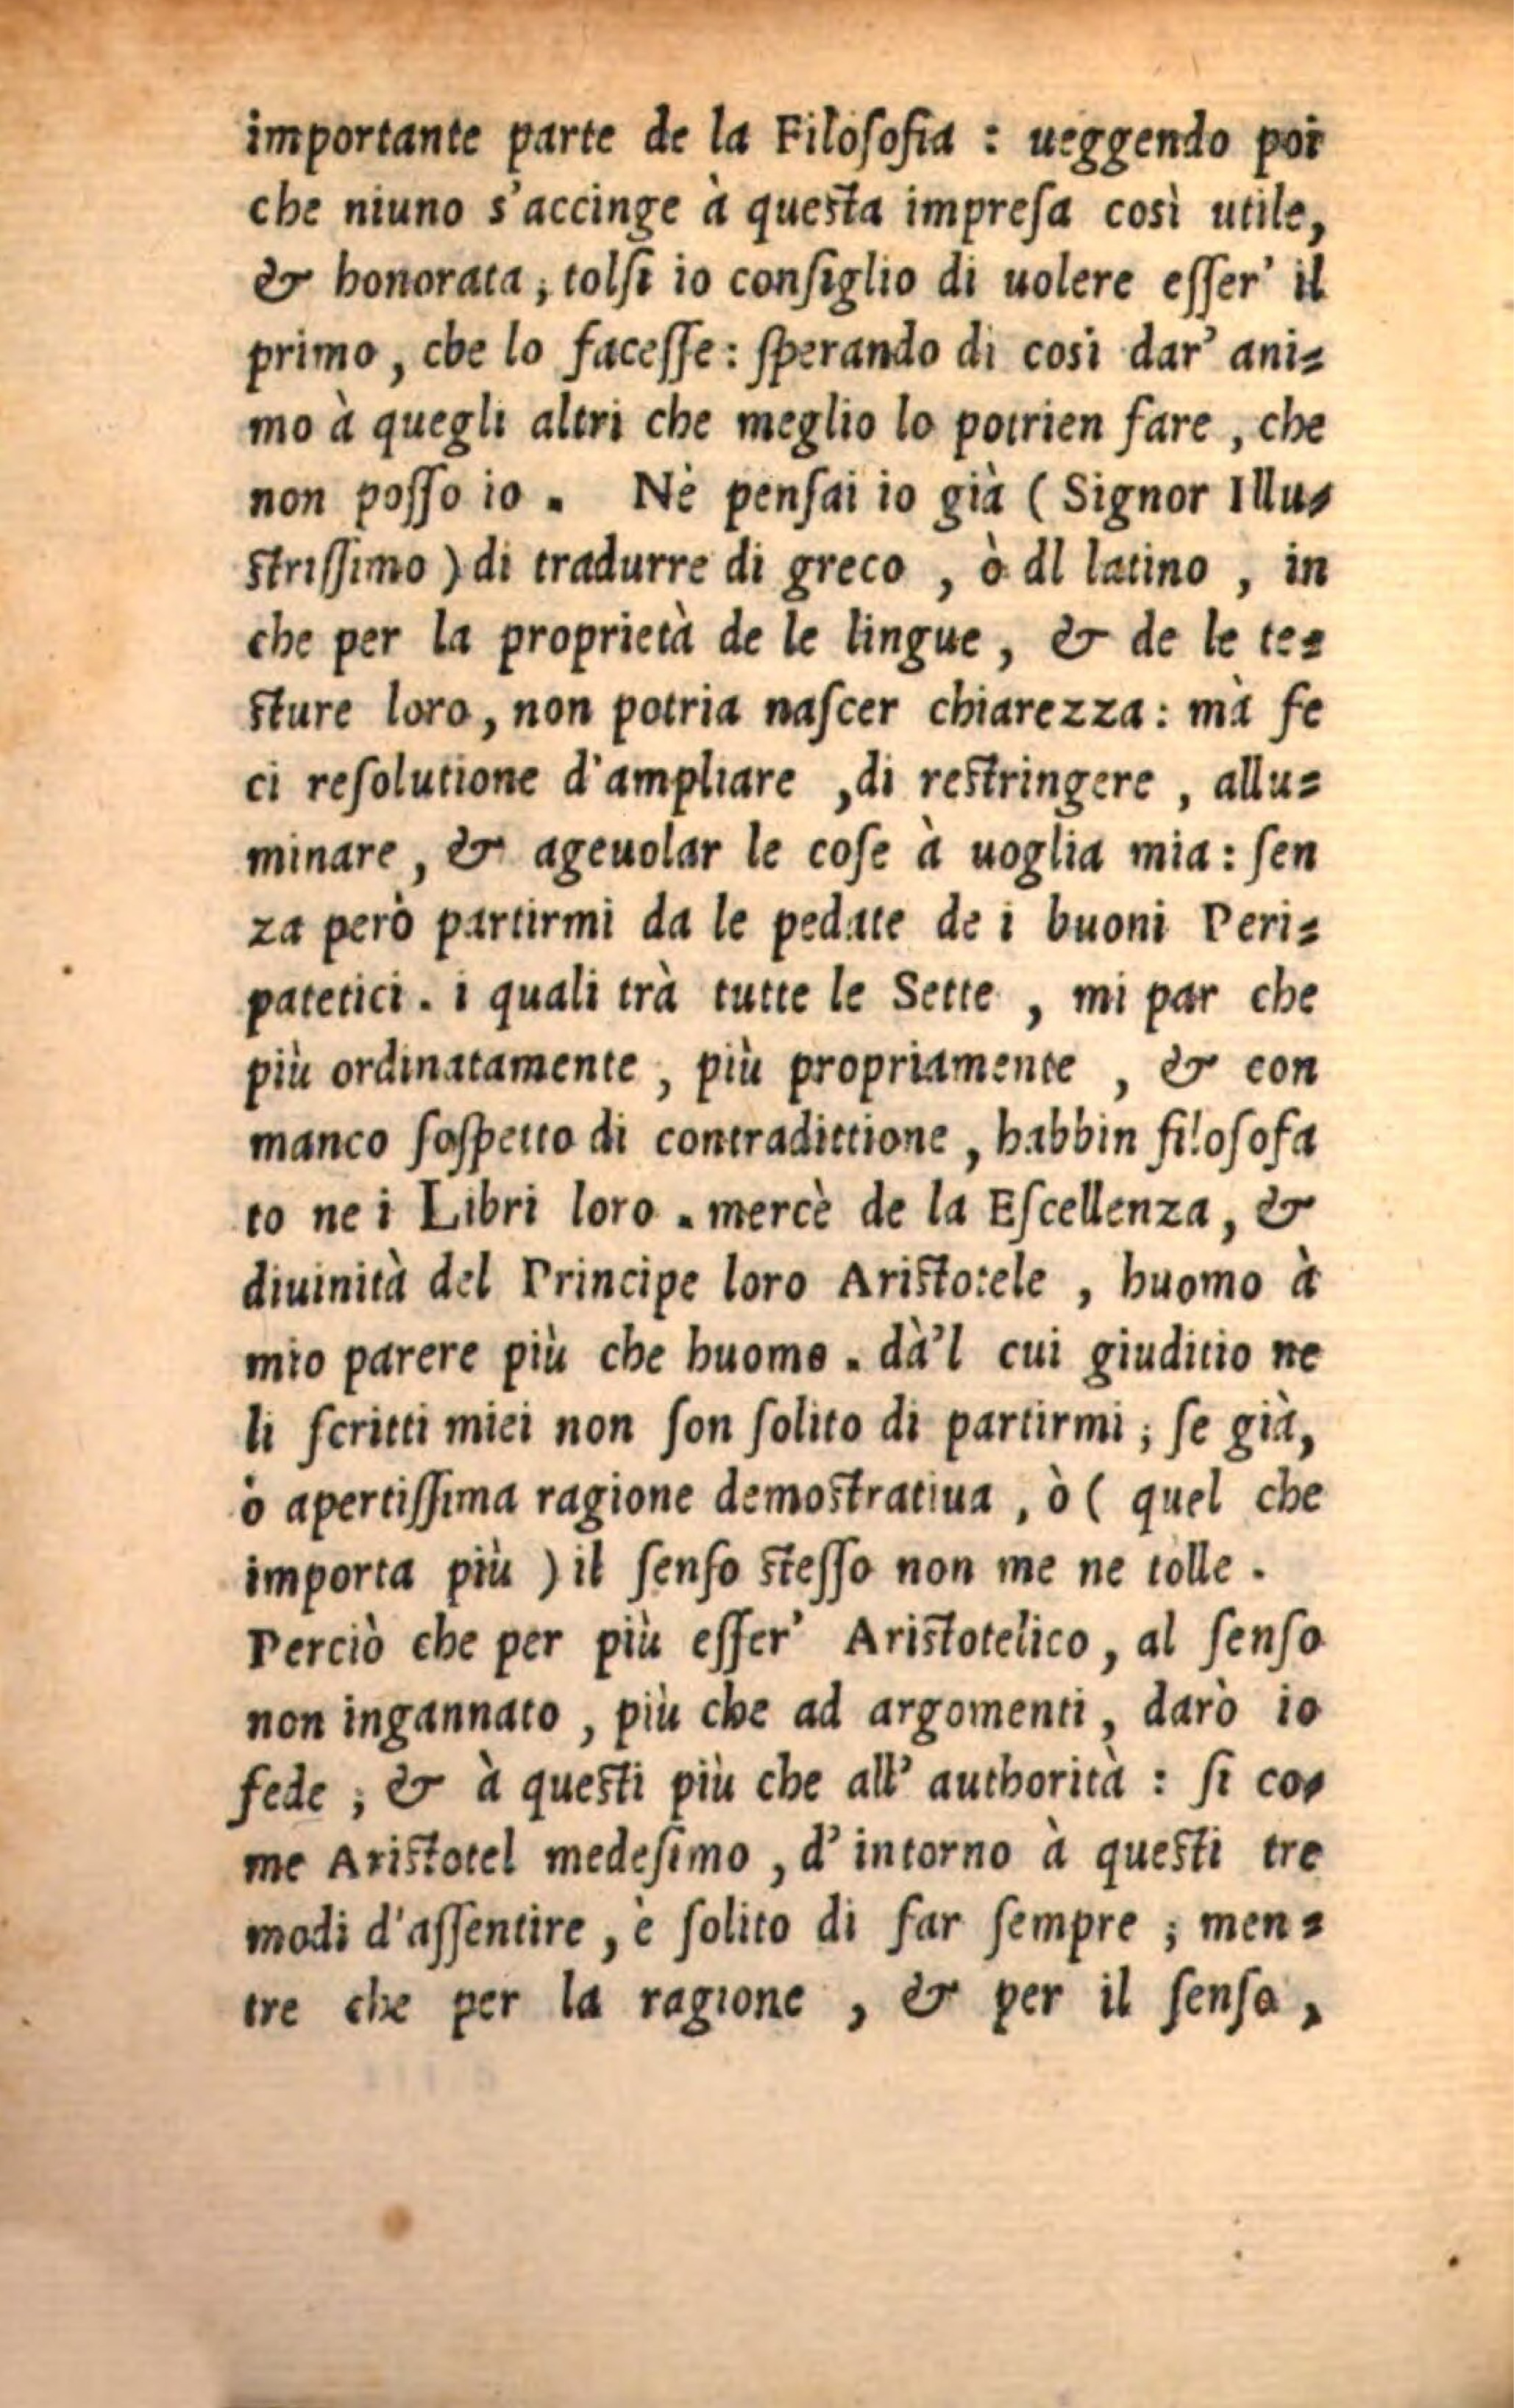 importante parte de la Filoſofia : ueggendo poi
che niuno s'accinge à queſta impreſa così utile,
& honorata; tolſi io conſiglio di uolere eſſer' il
primo, che lo faceſſe: ſperando di cosi dar' ani=
mo à quegli altri che meglio lo potrien fare, che
non poſſo io. Nè penſai io già (Signor Illu=
ſtriſſimo) di tradurre di greco, ò dl latino, in
che per la proprietà de le lingue, & de le te=
ſture loro, non potria naſcer chiarezza: mà fe
ci reſolutione d'ampliare, di reſtringere, allu=
minare, & ageuolar le coſe à uoglia mia: ſen
za però partirmi da le pedate de i buoni Peri=
patetici. i quali trà tutte le Sette, mi par che
più ordinatamente, più propriamente, & con
manco ſoſpetto di contradittione, habbin filoſofa
to ne i Libri loro. mercè de la Eſcellenza, &
diuinità del Principe loro Ariſtotele, huomo à
mio parere più che huomo. dà'l cui giuditio ne
li ſcritti miei non ſon ſolito di partirmi; ſe già,
ò apertiſſima ragione demoſtratiua, ò (quel che
importa più) il ſenſo ſteſſo non me ne tolle.
Perciò che per più eſſer' Ariſtotelico, al ſenſo
non ingannato, più che ad argomenti, darò io
fede; & à queſti più che all' authorità: ſi co=
me Ariſtotel medeſimo, d'intorno à queſti tre
modi d'aſſentire, è ſolito di far ſempre; men=
tre che per la ragione, & per il ſenſo,